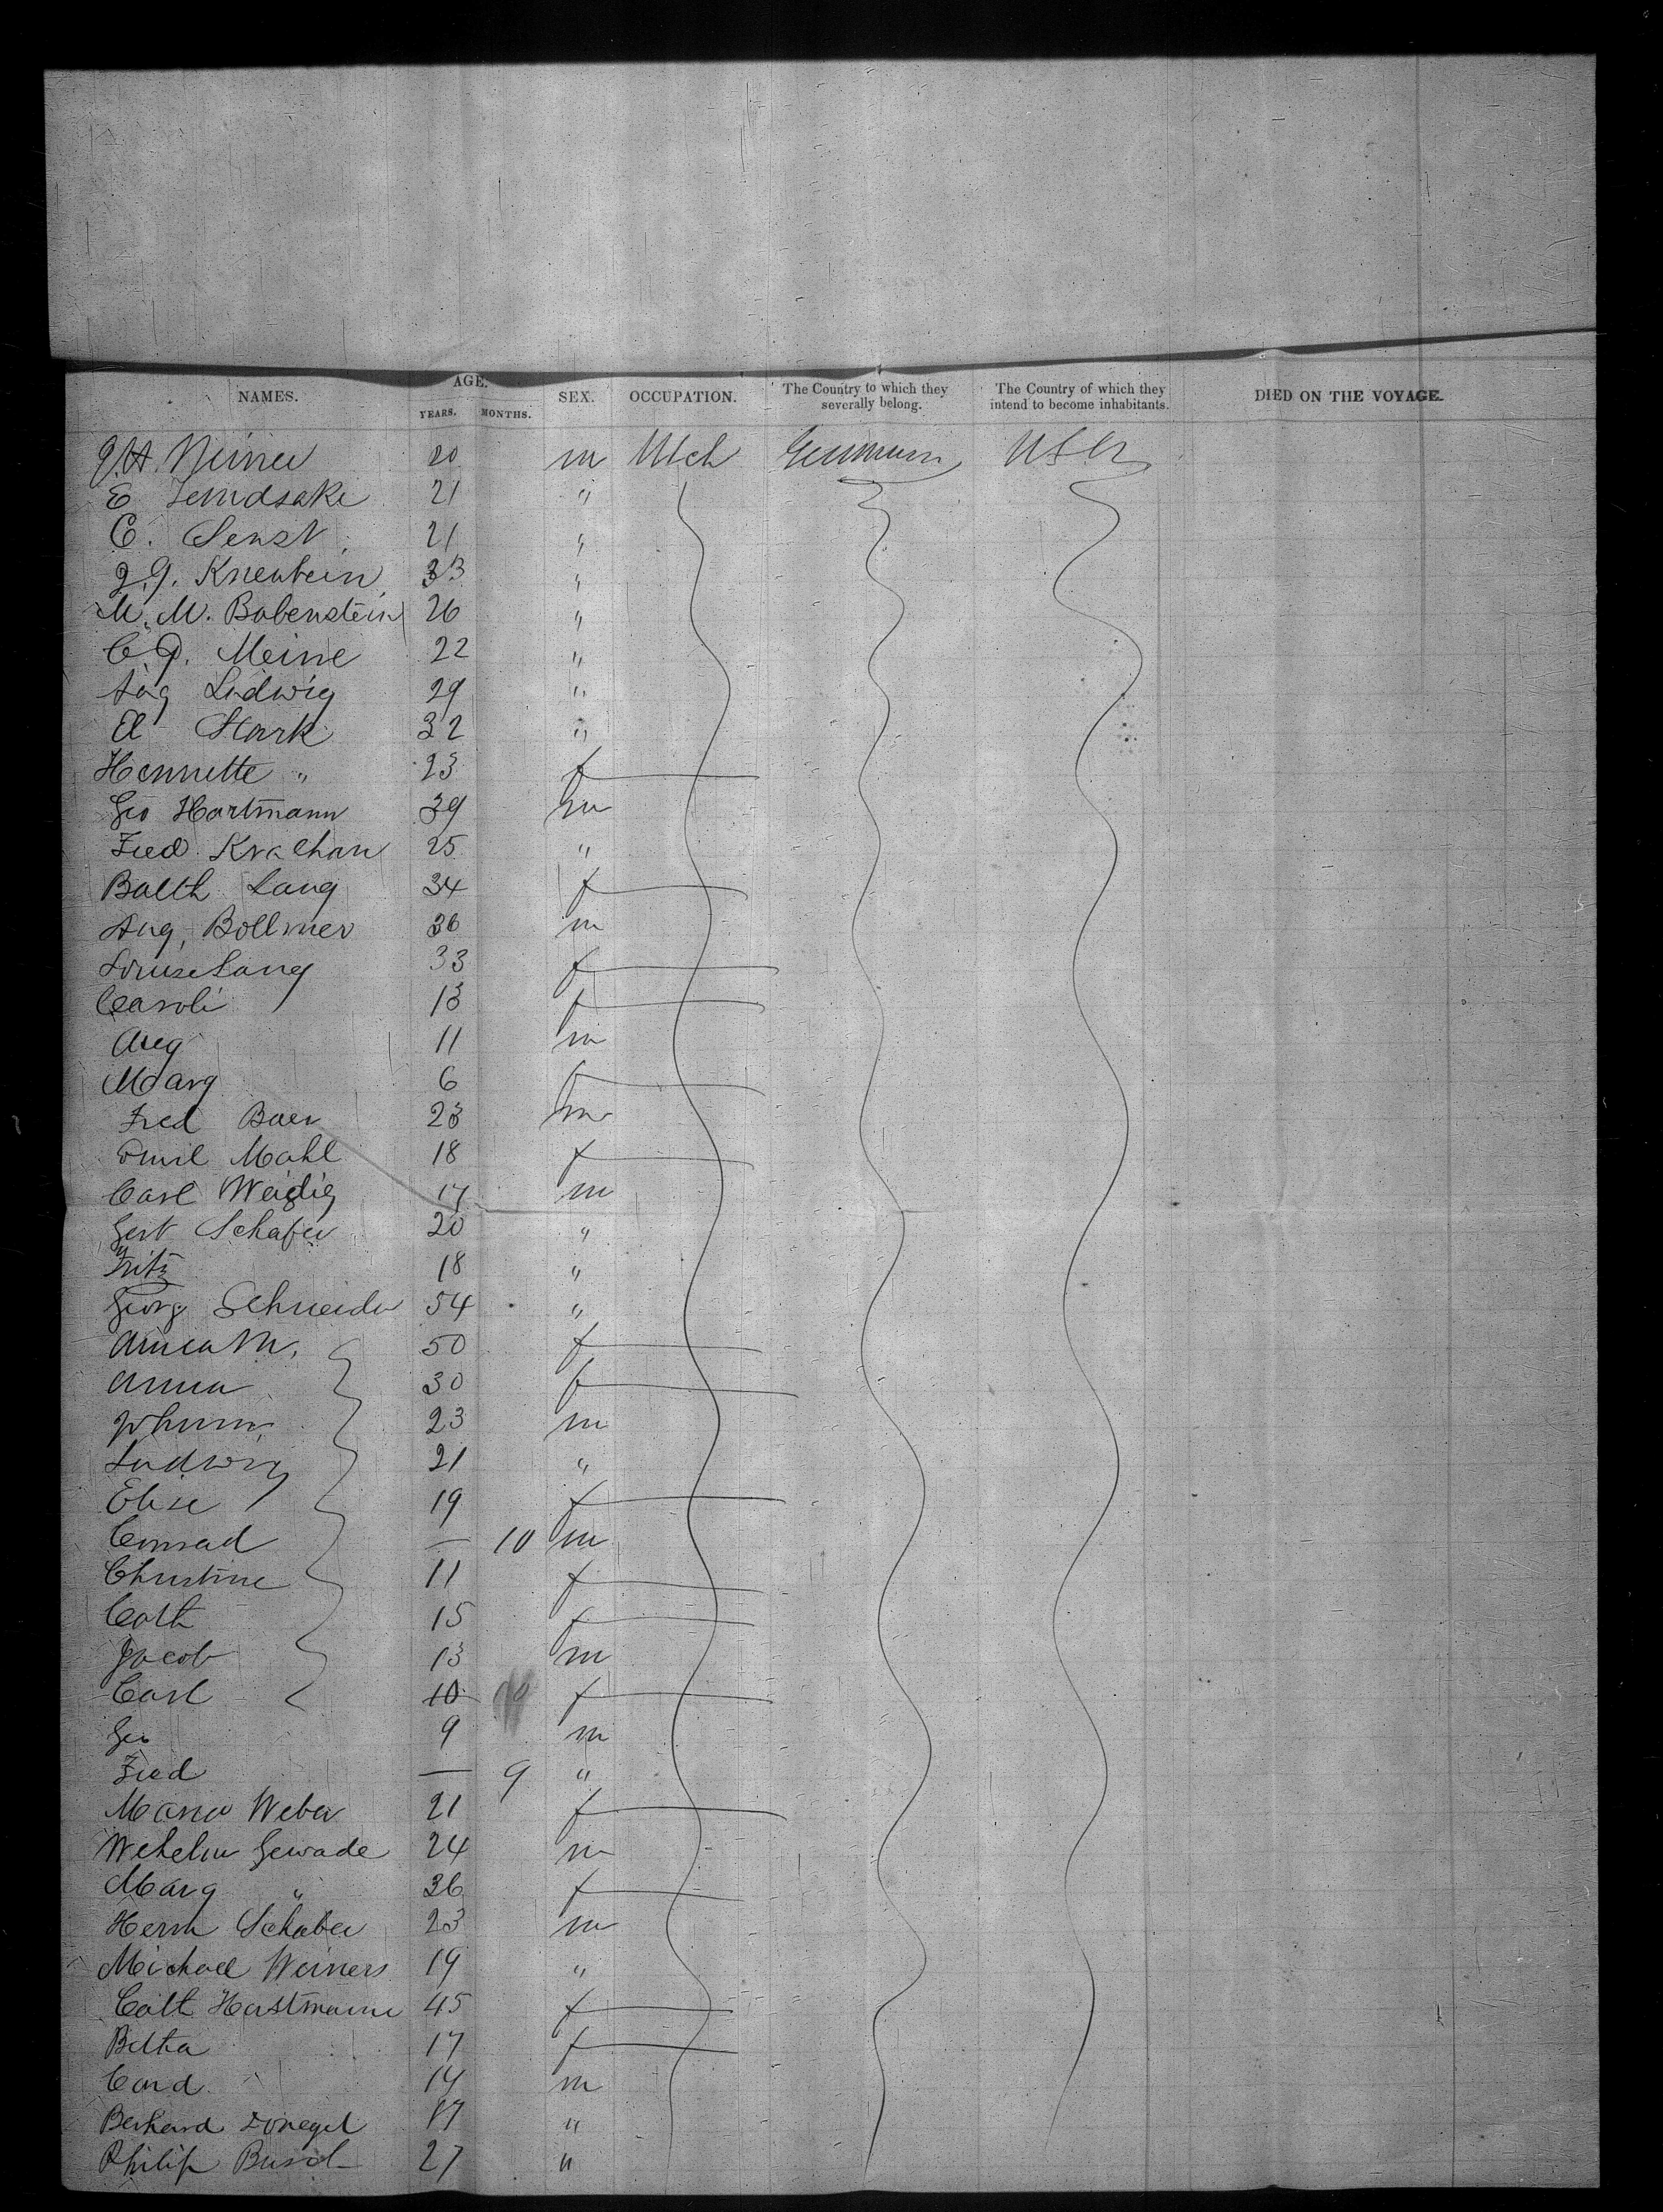 NAMES. AGE. YEARS. MONTHS. SEX. OCCUPATION. The Country to which they severally belong. The Country of which they intend to become inhabitants. DIED ON THE VOYAGE.
20 m Germany USA
E 21 "
C. Senst 21 "
33 "
M. M. Bobenstein 26 "
C. Meine 22 "
Aug Ludwig 29 "
A Stark 32 "
Henriette " 23 f
Geo Hartmann 39 m
Fred 25 "
Balth Lang 34 f
Aug. Bollmer 36 m
Louise Lang 33 f
Caroli 13 f
Aug 11 m
Marg 6 f
Fred Baer 23 m
Emil Mahl 18 f
Carl Weidig 17 m
Gert Schafer 20 "
Fritz " 18 "
Georg Schneider 54 "
Anna M. 50 f
Anna 30 f
Johann 23 m
Ludwig 21 "
Elise 19 f
Conrad — 10 m
Christine 11 f
Cath 15 f
Jacob 13 m
Carl 10 f
Geo 9 m
Fred — 9 "
Maria Weber 21 f
Wilhelm Gewade 24 m
Marg " 26 f
Herm Schaber 23 m
Michael Weiners 19 "
Cath Hartmann 45 f
17 f
14 m
Bernhard 17 "
Philip Busch 27 "